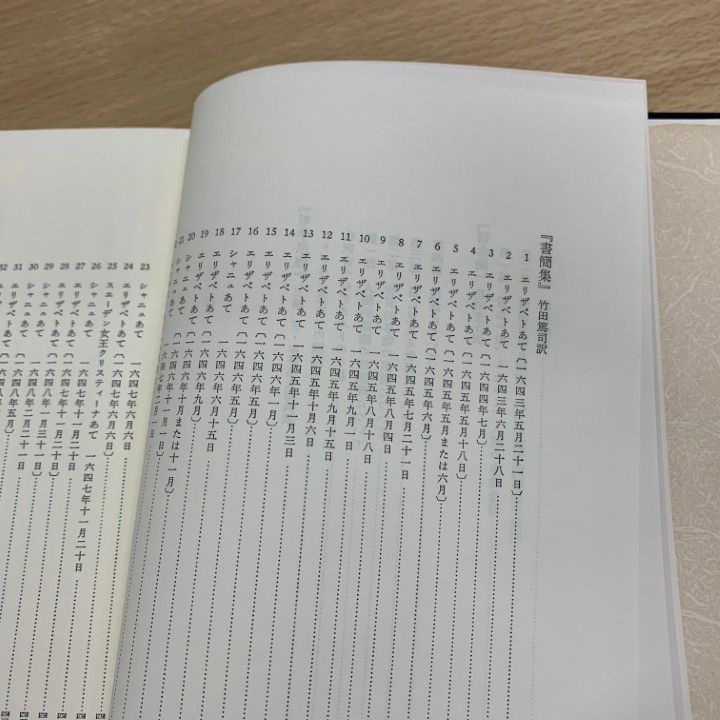 『書簡集』 竹田篤司訳
1 エリザベトあて〔一六四三年五月二十一日〕
2 エリザベトあて 一六四三年六月二十八日
3 エリザベトあて〔一六四四年七月〕
4 エリザベトあて〔一六四五年五月十八日〕
5 エリザベトあて〔一六四五年五月または六月〕
6 エリザベトあて〔一六四五年六月〕
7 エリザベトあて 一六四五年七月二十一日
8 エリザベトあて 一六四五年八月四日
9 エリザベトあて 一六四五年八月十八日
10 エリザベトあて 一六四五年九月一日
11 エリザベトあて 一六四五年九月十五日
12 エリザベトあて 一六四五年十月六日
13 エリザベトあて 一六四五年十一月三日
14 エリザベトあて
15 エリザベトあて
16 エリザベトあて
17 シャニュあて
18 エリザベトあて
19 エリザベトあて
20 シャニュあて
21 シャニュあて
23 シャニュあて 一六四七年六月六日
24 エリザベトあて〔一六四七年六月六日〕
25 スエーデン女王クリスティーナあて 一六四七年十一月二十日
26 シャニュあて
27 エリザベトあて 一六四七年十一月二十日
28 エリザベトあて
29 シャニュあて
30 シャニュあて
31 エリザベトあて
32